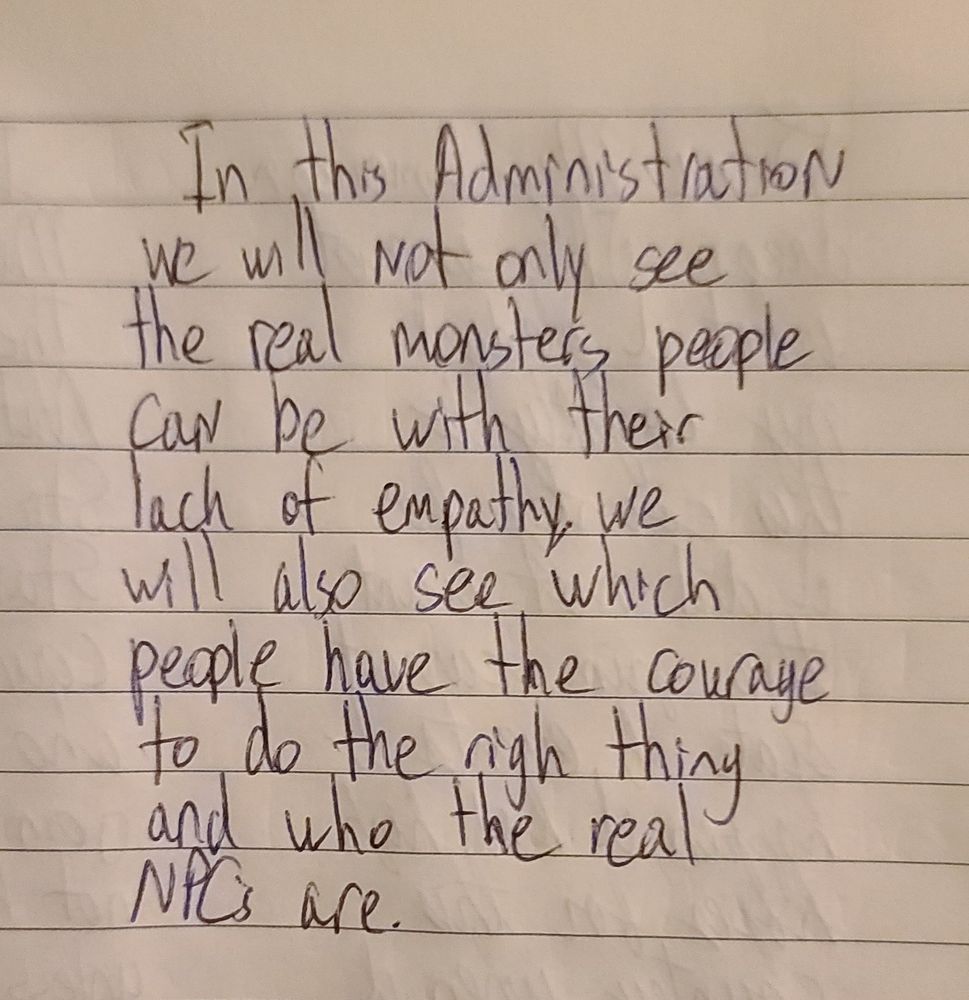 In this Administration
we will not only see
the real monsters people
can be with their
lach of empathy, we
will also see which
people have the courage
to do the righ thing
and who the real
NPC's are.